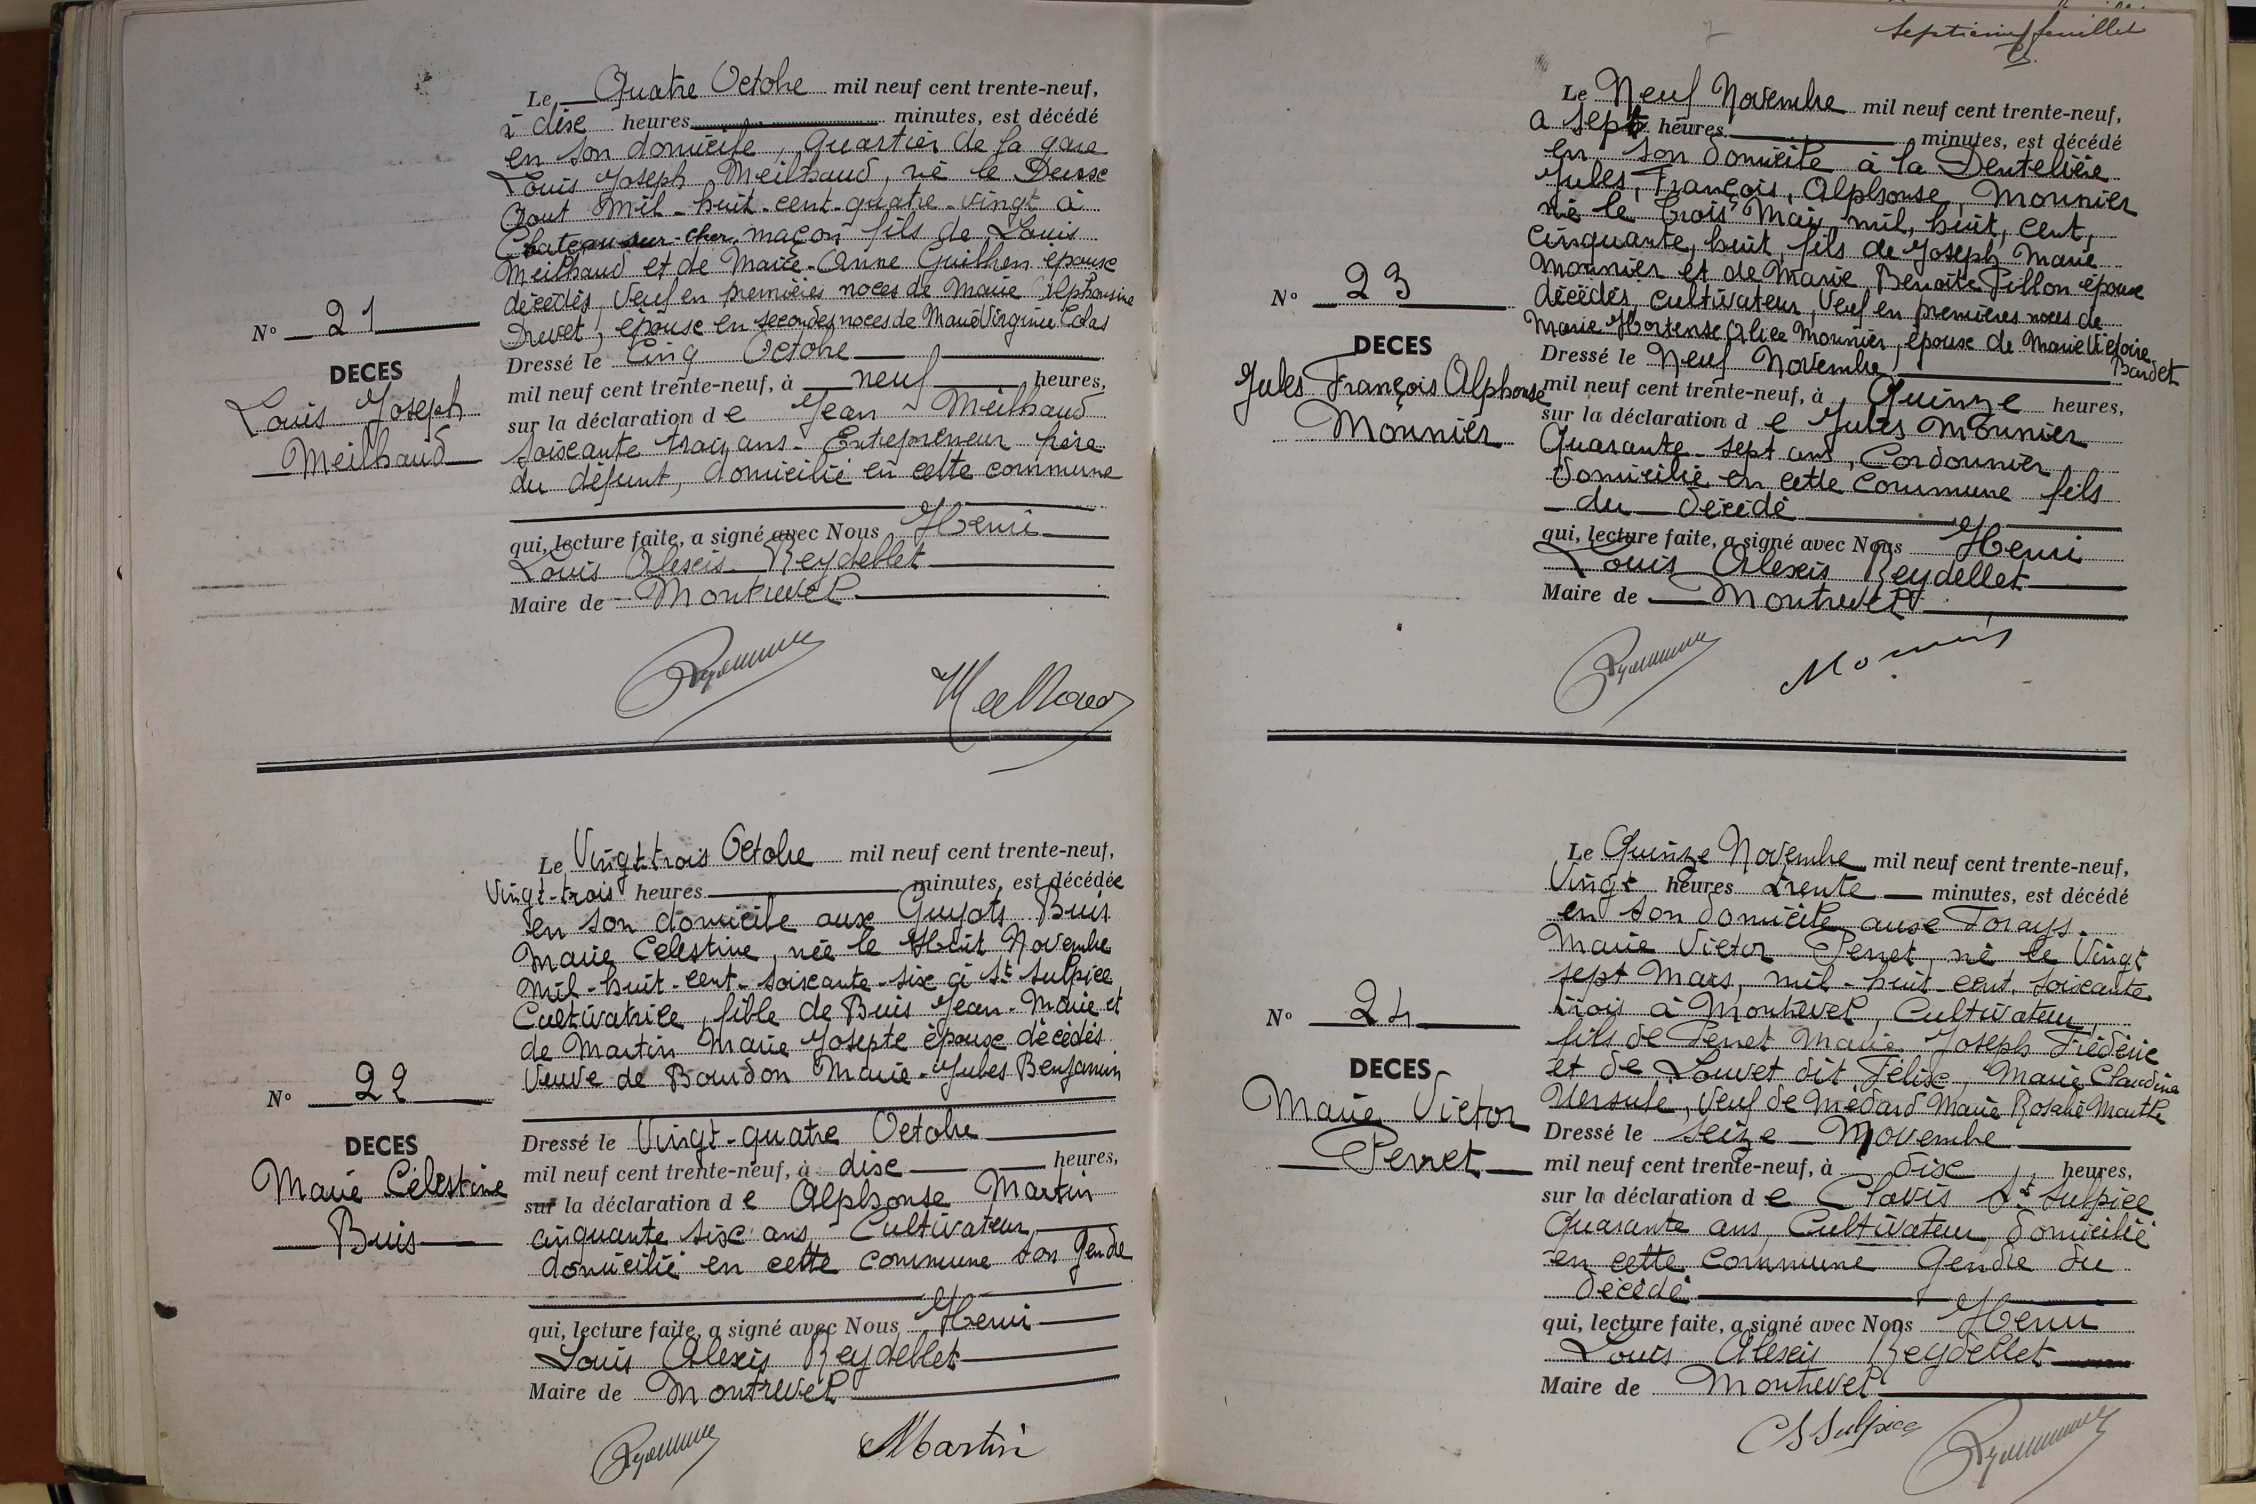 Le Quatre Octobre mil neuf cent trente-neuf,
à dixe heures minutes, est décédé
en son domicile, Quartier de la gare
Louis Joseph Meilhaud, né le Deuxe
Aout Mil-huit-cent-quatre-vingt à
Chateau-sur-Cher, maçon fils de Louis
Meilhaud et de Marie-Anne Guilhen épouse
décédés, Veuf en premières noces de Marie Alphonsine
Drevet, épouse en secondes noces de Marie Virginie Colas
N° 21
DECES
Louis Joseph
Meilhaud
Dressé le Cinq Octobre
mil neuf cent trente-neuf, à neuf heures,
sur la déclaration de Jean Meilhaud
soixante trois ans - Entrepreneur frère
du défunt, domicilié en cette commune
qui, lecture faite, a signé avec Nous Henri
Louis Alexis Reydellet
Maire de Montrevel
Meilhaud
Le Vingt-trois Octobre mil neuf cent trente-neuf,
Vingt-trois heures minutes, est décédée
en son domicile aux Guyots Buis
Marie Celestine, née le Huit Novembre
Mil-huit-cent-soixante-six à St Sulpice
Cultivatrice, fille de Buis Jean-Marie et
de Martin Marie Josepte épouse décédés
Veuve de Bourdon Marie-Jules Benjamin
N° 22
DECES
Marie Célestine
Buis
Dressé le Vingt-quatre Octobre
mil neuf cent trente-neuf, à dixe heures,
sur la déclaration de Alphonse Martin
cinquante sixe ans, Cultivateur,
domicilié en cette commune son gendre
qui, lecture faite, a signé avec Nous Henri
Louis Alexis Reydellet
Maire de Montrevel
Martin
septième feuillet
Le Neuf Novembre mil neuf cent trente-neuf,
a sept heures minutes, est décédé
en son domicile à la Dentellière
Jules, François, Alphonse, Mounier
né le trois Mai, mil, huit, cent,
cinquante, huit, fils de Joseph Marie
Mounier et de Marie, Benoite Pillon épouse
décédés, cultivateur, Veuf en premières noces de
Marie Hortense Alice Mounier, épouse de Marie Victoire
Bardet
N° 23
DECES
Jules François Alphonse
Mounier
Dressé le Neuf Novembre
mil neuf cent trente-neuf, à Quinze heures,
sur la déclaration de Jules Mounier
Quarante-sept ans, Cordonnier
domicilié en cette commune fils
du décédé
qui, lecture faite, a signé avec Nous Henri
Louis Alexis Reydellet
Maire de Montrevel
Mounier
Le Quinze Novembre mil neuf cent trente-neuf,
Vingt heures trente minutes, est décédé
en son domicile auxe Torays
Marie Victor Perret, né le Vingt
sept Mars, mil-huit-cent soixante
trois à Montrevel, Cultivateur,
fils de Perret Marie Joseph Frédéric
et de Louvet dit Félixe, Marie Claudine
Uersule, Veuf de Médard Marie Rosalie Marthe
N° 24
DECES
Marie Victor
Perret
Dressé le seize Novembre
mil neuf cent trente-neuf, à dixe heures,
sur la déclaration de Clovis St Sulpice
Quarante ans, Cultivateur domicilié
en cette commune gendre du
décédé
qui, lecture faite, a signé avec Nous Henri
Louis Alexis Reydellet
Maire de Montrevel
C St Sulpice